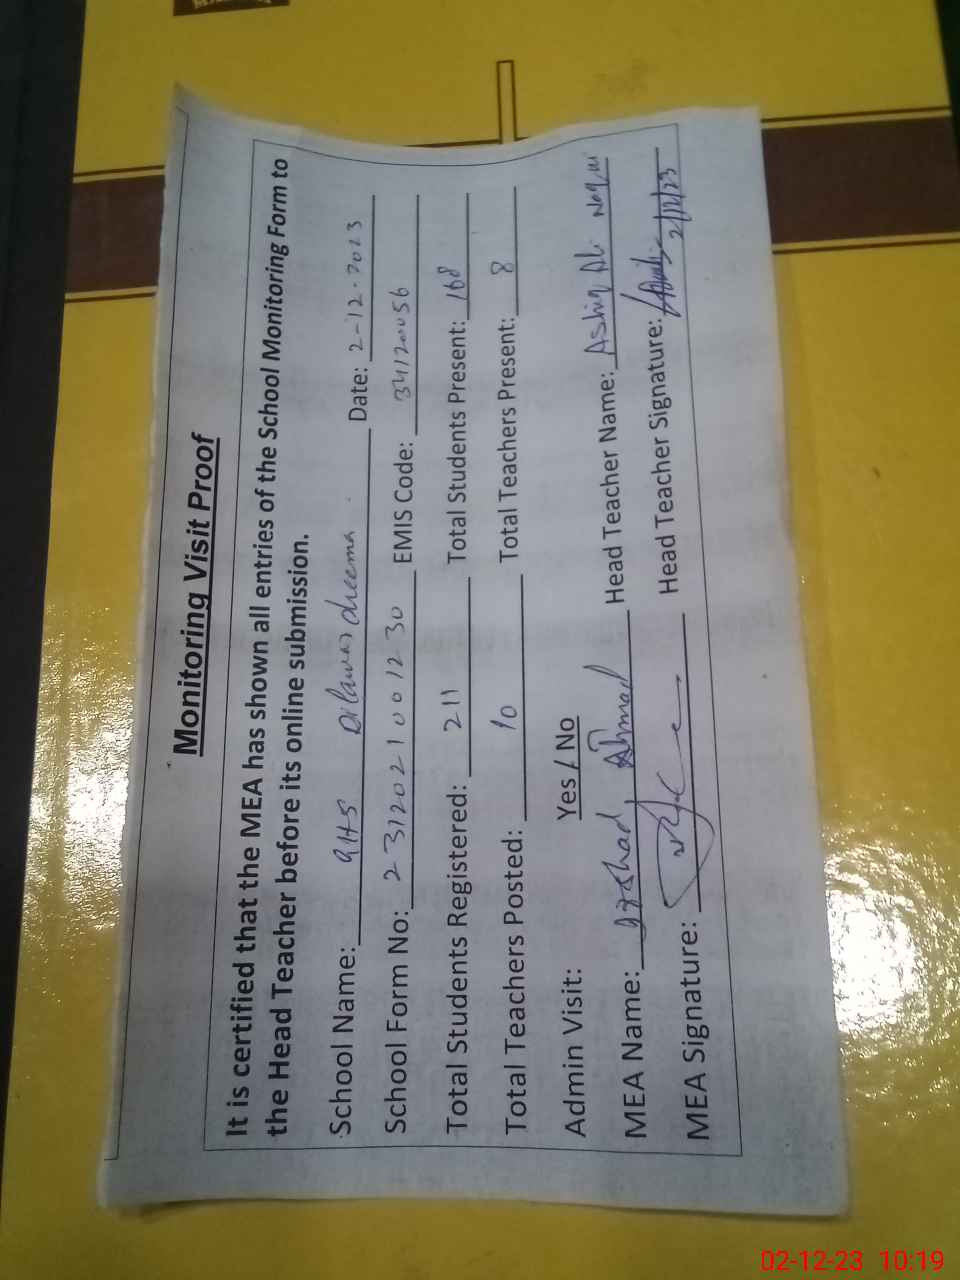 Monitoring Visit Proof
It is certified that the MEA has shown all entries of the School Monitoring Form to
the Head Teacher before its online submission.
School Name: GHS Dilawar cheema Date: 2-12-2023
School Form No: 2312021001230 EMIS Code: 34120056
Total Students Registered: 211 Total Students Present: 168
Total Teachers Posted: 10 Total Teachers Present: 8
Admin Visit: Yes / No
MEA Name: Arshad Ahmad Head Teacher Name: Ashiq Ali Naqvi
MEA Signature: Head Teacher Signature: 2/12/23
02-12-23 10:19